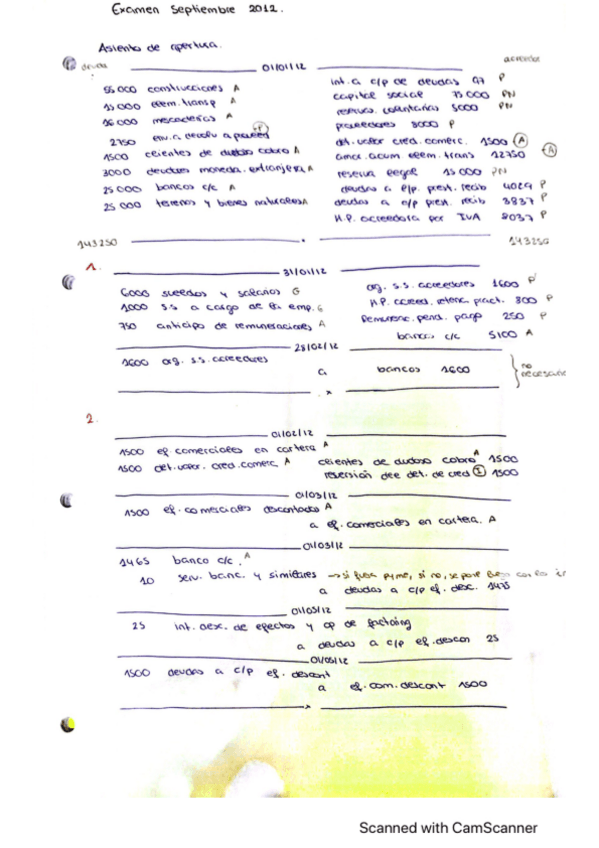 Examen Septiembre 2012.
Asiento de apertura.
deudor 01/01/12 acreedor
55000 construcciones A
elem. transp A
mercaderías A
2750
1500 clientes de dudoso cobro A
3000 deudores moneda extranjera A
25000 bancos c/c A
25000 terrenos y bienes naturales A
int. a c/p de deudas 97 P
capital social 75000 PN
reservas voluntarias 5000 PN
proveedores 8000 P
det. valor cred. comerc. 1500 A
amor. acum elem. trans 12750 A
reserva legal 15000 PN
deudas a l/p. prest. recib 4029 P
deudas a c/p pres. recib 3837 P
H.P. acreedora por IVA 8037 P
143250 143250
1.
31/01/12
6000 sueldos y salarios G
1000 s.s a cargo de la emp. G
750 anticipo de remuneraciones A
org. s.s. acreedores 1600 P
H.P. acreed. retenc. pract. 800 P
Remunerac. pend. pago 250 P
bancos c/c 5100 A
28/02/12
1600 org. s.s. acreedores
a bancos 1600
no necesario
2.
01/02/12
1500 ef comerciales en cartera A
1500 det. valor. cred. comerc A
clientes de dudoso cobro A 1500
reversión del det. de cred I 1500
01/03/12
1500 ef. comerciales descontados A
a ef. comerciales en cartera. A
01/03/12
1465 banco c/c. A
10 serv. banc. y similares → si fuera pyme, si no, se pone
a deudas a c/p ef. desc. 1475
01/05/12
25 int. desc. de efectos y op de factoing
a deudas a c/p ef. descon 25
01/05/12
1500 deudas a c/p ef. descont
a ef. com. descont 1500
Scanned with CamScanner